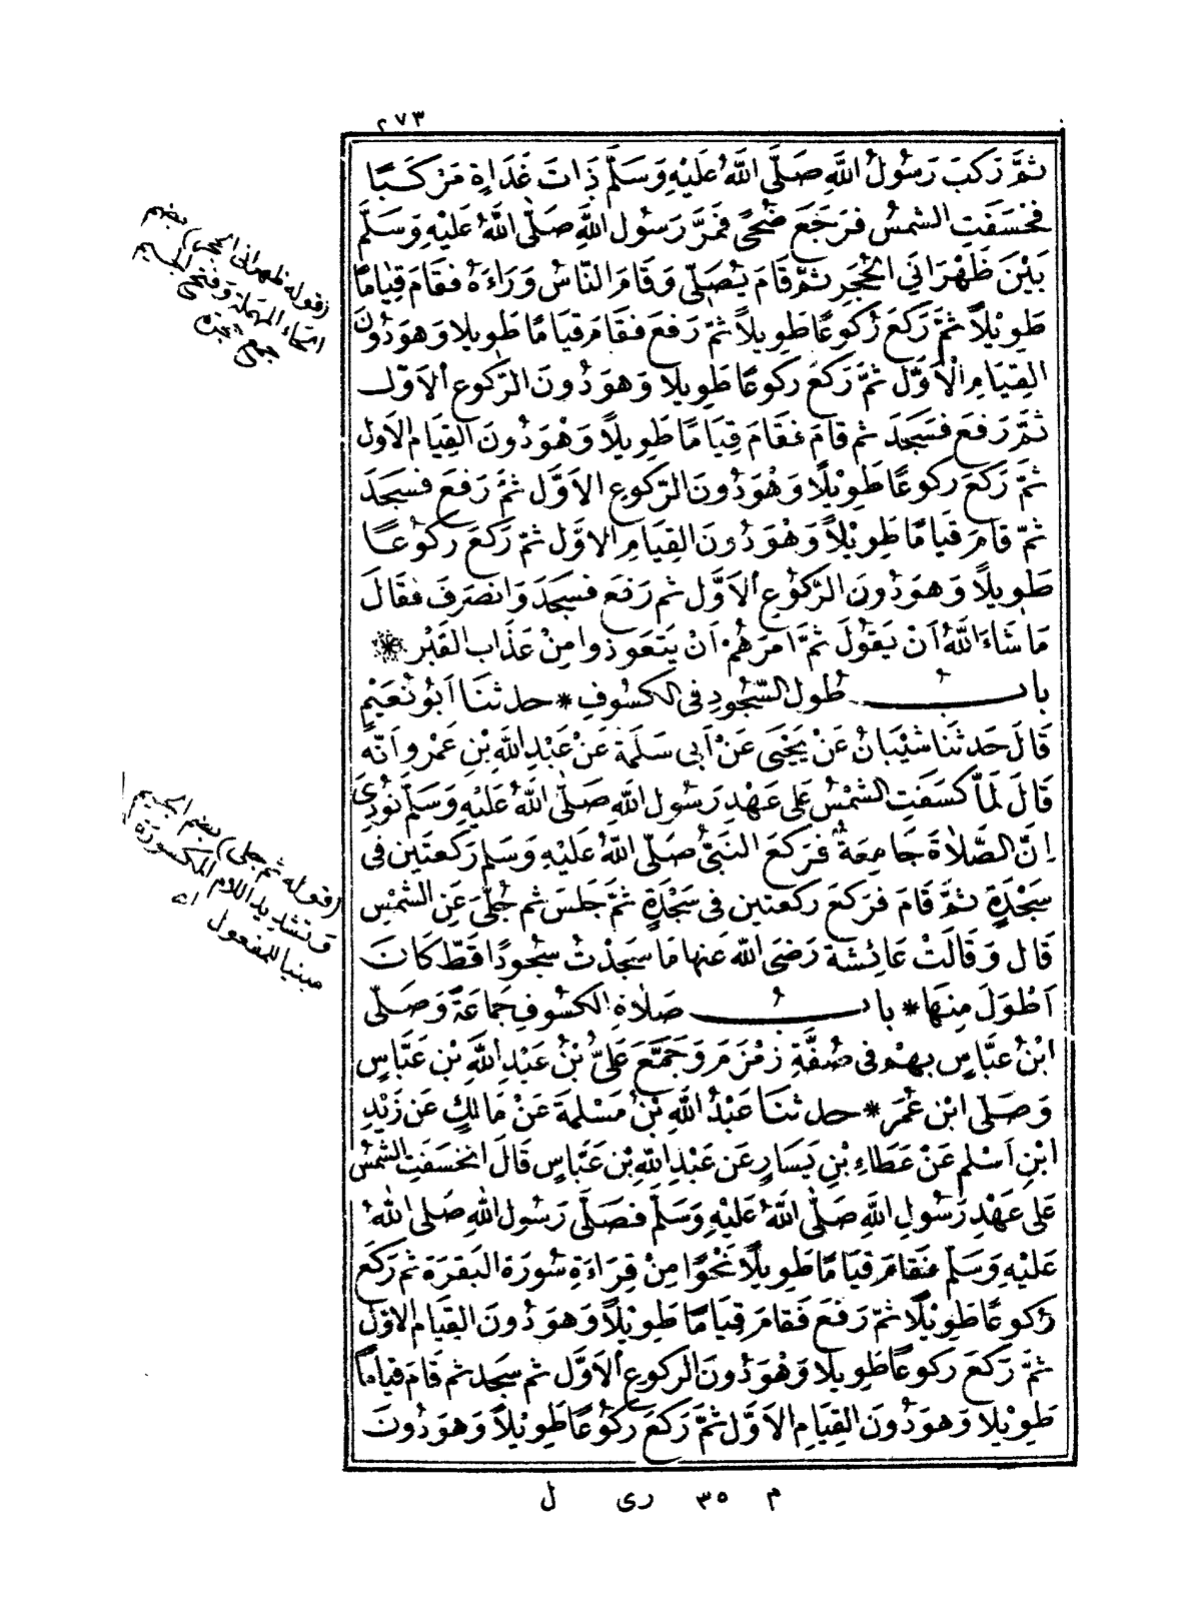 ٢٧٣
ثُمَّ رَكِبَ رَسُولُ اللَّهِ صَلَّى اللَّهُ عَلَيْهِ وَسَلَّمَ ذَاتَ غَدَاةٍ مَرْكَبًا
فَخَسَفَتِ الشمسُ فَرَجَعَ ضُحًى فَمَرَّ رَسُولُ اللَّهِ صَلَّى اللَّهُ عَلَيْهِ وَسَلَّمَ
بَيْنَ ظَهْرَانَيِ الْحُجَرِ ثُمَّ قَامَ يُصَلِّى وَقَامَ النَّاسُ وَرَاءَهُ فَقَامَ قِيَامًا
طَوِيْلاً ثُمَّ رَكَعَ رُكُوعًا طَوِيلاً ثُمَّ رَفَعَ فَقَامَ قِيَامًا طَوِيلا وَهوَ دُونَ
القِيَامِ الْأَوَّلِ ثُمَّ رَكَعَ رُكُوعًا طَوِيلا وَهوَ دُونَ الرُّكُوعِ الأوّل
ثُمَّ رَفَعَ فَسَجَدَ ثم قامَ فَقَامَ قِيَامًا طَوِيلاً وَهْوَ دُونَ القِيَامِ الأول
ثمَّ رَكَعَ رُكوعًا طَوِيْلًا وَهْوَ دُونَ الرّكوعِ الأَوَّل ثمَّ رَفَعَ فسَجَدَ
ثُمّ قَامَ قِيَامًا طَوِيْلاً وَهْوَ دُونَ القِيَامِ الاوَّل ثمّ رَكَعَ رُكُوعًا
طَوِيلاً وَهوَ دُونَ الرُّكُوعِ الأَوَّل ثم رَفَعَ فسَجَدَ وَانصَرَفَ فقَالَ
مَا شَاءَ اللَّهُ أَنْ يَقُولَ ثُمَّ أَمَرَهُمْ أَنْ يَتَعَوّذوا مِنْ عَذَابِ القَبْرِ *
بابُ طُولِ السّجُودِ فى الكسُوفِ * حدثنَا أَبُو نُعَيْمٍ
قَالَ حَدثنَا شَيْبَانُ عَنْ يَحْيَى عَنْ أَبى سَلَمَةَ عَنْ عَبْدِ اللَّهِ بْنِ عَمْرٍو أَنّهُ
قَالَ لَمَّا كَسَفَتِ الشمْسُ عَلَى عَهْدِ رَسُولِ اللَّهِ صَلَّى اللَّهُ عَلَيْهِ وَسَلَّمَ نُودِىَ
إنَّ الصَّلاَةَ جَامِعَةٌ فَرَكَعَ النَّبِىُّ صَلّى اللَّهُ عَلَيْهِ وَسَلم رَكعَتَين فى
سَجْدَةٍ ثمَّ قَامَ فَرَكَعَ رَكعتين فى سَجْدَةٍ ثمَّ جَلَسَ ثم جُلِّىَ عَنِ الشمْسِ
قَال وَقَالَتْ عَائِشة رَضىَ اللَّه عَنها مَا سَجَدْتُ سُجُودًا قَطّ كَانَ
أَطْوَلَ مِنهَا * بابُ صَلاَةِ الكسُوفِ جَمَاعَةً وَصَلّى
ابْنُ عَبَّاسٍ بِهِمْ فى صُفَّةِ زَمْزَمَ وَجَمَّعَ عَلِىُّ بْنُ عَبْدِ اللَّهِ بْنِ عَبّاسٍ
وَصَلى ابْن عُمَرَ * حدثنَا عَبْدُ اللَّهِ بْنُ مَسْلمةَ عَنْ مَالِكٍ عَن زَيْدِ
ابْنِ أَسْلم عَنْ عَطَاءِ بْنِ يَسَارٍ عَن عَبْدِ اللَّهِ بْن عَبَّاسٍ قَالَ انْخَسَفَتِ الشمْسُ
عَلَى عَهْدِ رَسُولِ اللَّهِ صَلَّى اللَّهُ عَلَيْهِ وَسَلّمَ فصَلَّى رَسُول اللَّهِ صَلى اللَّهُ
عَلَيْهِ وَسَلّم فَقَامَ قِيَامًا طَوِيلًا نَحْوًا مِنْ قِرَاءَةِ سُورَةِ البَقرَة ثمّ رَكَعَ
رُكوعًا طَوِيْلًا ثمّ رَفَعَ فَقَامَ قِيَامًا طَوِيْلاً وَهوَ دُونَ القِيَامِ الأوّل
ثمَّ رَكَعَ رُكوعًا طَوِيلا وَهْوَ دُونَ الركوعِ الأَوَّل ثم سَجَد ثم قَامَ قِيامًا
طَوِيْلا وَهوَ دُونَ القِيَامِ الأَوَّل ثمَّ رَكَعَ رُكُوعًا طَوِيْلاً وَهوَ دُونَ
(قوله ظهرانى الحجر) بضم
الحاء المهملة وفتح الجيم
جمع حجرة
(قوله ثم جلى) بضم الجيم
وتشديد اللام المكسورة
مبنيا للمفعول اه
م ٣٥ رى ل